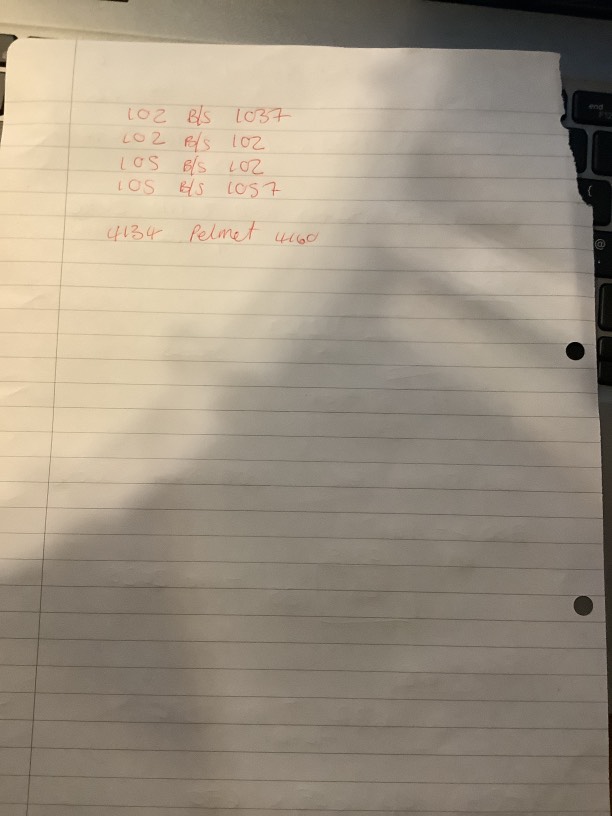 102 B/S 1037
102 B/S 102
105 B/S 102
105 B/S 1057
4134 Pelmet 4160